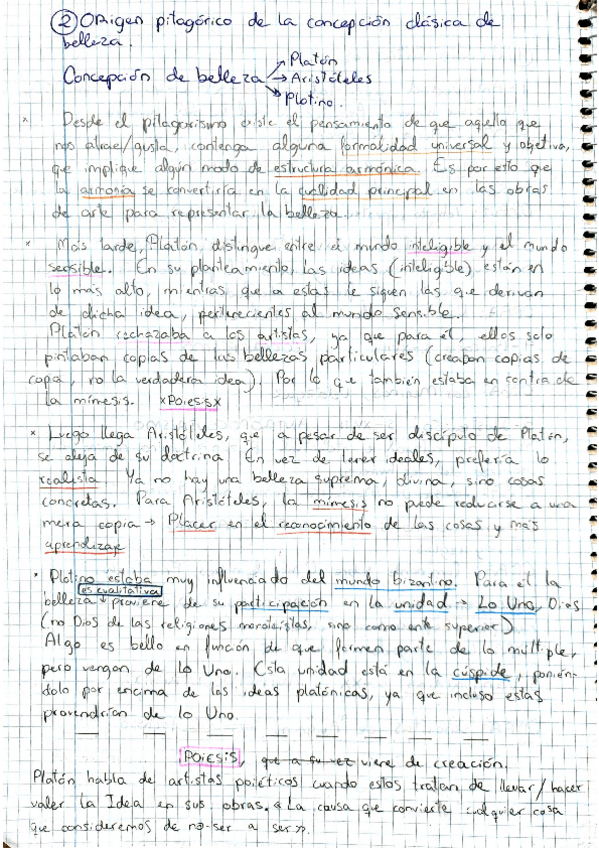 ② Origen pitagórico de la concepción clásica de
belleza.
Concepción de belleza → Platón
→ Aristóteles
→ Plotino.
* Desde el pitagorismo existe el pensamiento de que aquello que
nos atrae/gusta, contenga alguna formalidad universal y objetiva,
que implique algún modo de estructura armónica. Es por esto que
la armonía se convertiría en la cualidad principal en las obras
de arte para representar la belleza.
* Más tarde, Platón, distingue entre el mundo inteligible y el mundo
sensible. En su planteamiento, las ideas (inteligible) están en
lo más alto, mientras que a estas le siguen las que derivan
de dicha idea, pertenecientes al mundo sensible.
Platón rechazaba a los artistas, ya que para él, ellos solo
pintaban copias de las bellezas particulares (creaban copias de
copia, no la verdadera idea). Por lo que también estaba en contra de
la mímesis. xPOIESISx
* Luego llega Aristóteles, que a pesar de ser discípulo de Platón,
se aleja de su doctrina. En vez de tener ideales, prefería lo
realista. Ya no hay una belleza suprema, divina, sino cosas
concretas. Para Aristóteles, la mímesis no puede reducirse a una
mera copia → Placer en el reconocimiento de las cosas y más
aprendizaje
* Plotino estaba muy influenciado del mundo bizantino. Para él la
es cualitativa
belleza proviene de su participación en la unidad → Lo Uno, Dios
(no Dios de las religiones monoteístas, sino como ente superior)
Algo es bello en función de que formen parte de lo múltiple,
pero vengan de lo Uno. Esta unidad está en la cúspide, ponién-
dolo por encima de las ideas platónicas, ya que incluso estas
provendrían de lo Uno.
POIESIS, que a su vez viene de creación.
Platón habla de artistas poiéticos cuando estos tratan de llevar/hacer
valer la Idea en sus obras. « La causa que convierte cualquier cosa
que consideremos de no-ser a ser ».